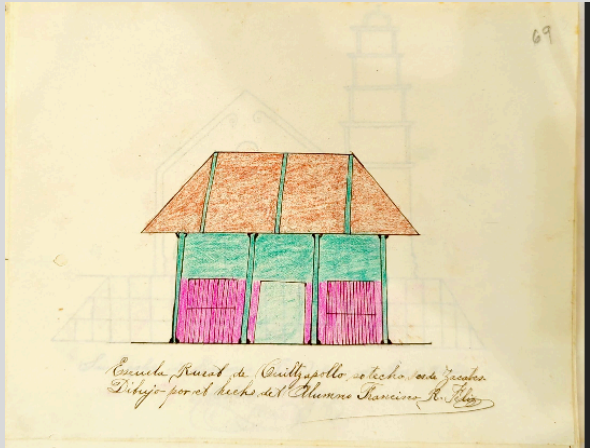 69
Escuela Rural de Cuiltzapollo, su techo es de Zacates.
Dibujo por el hecho del Alumno Francisco R.